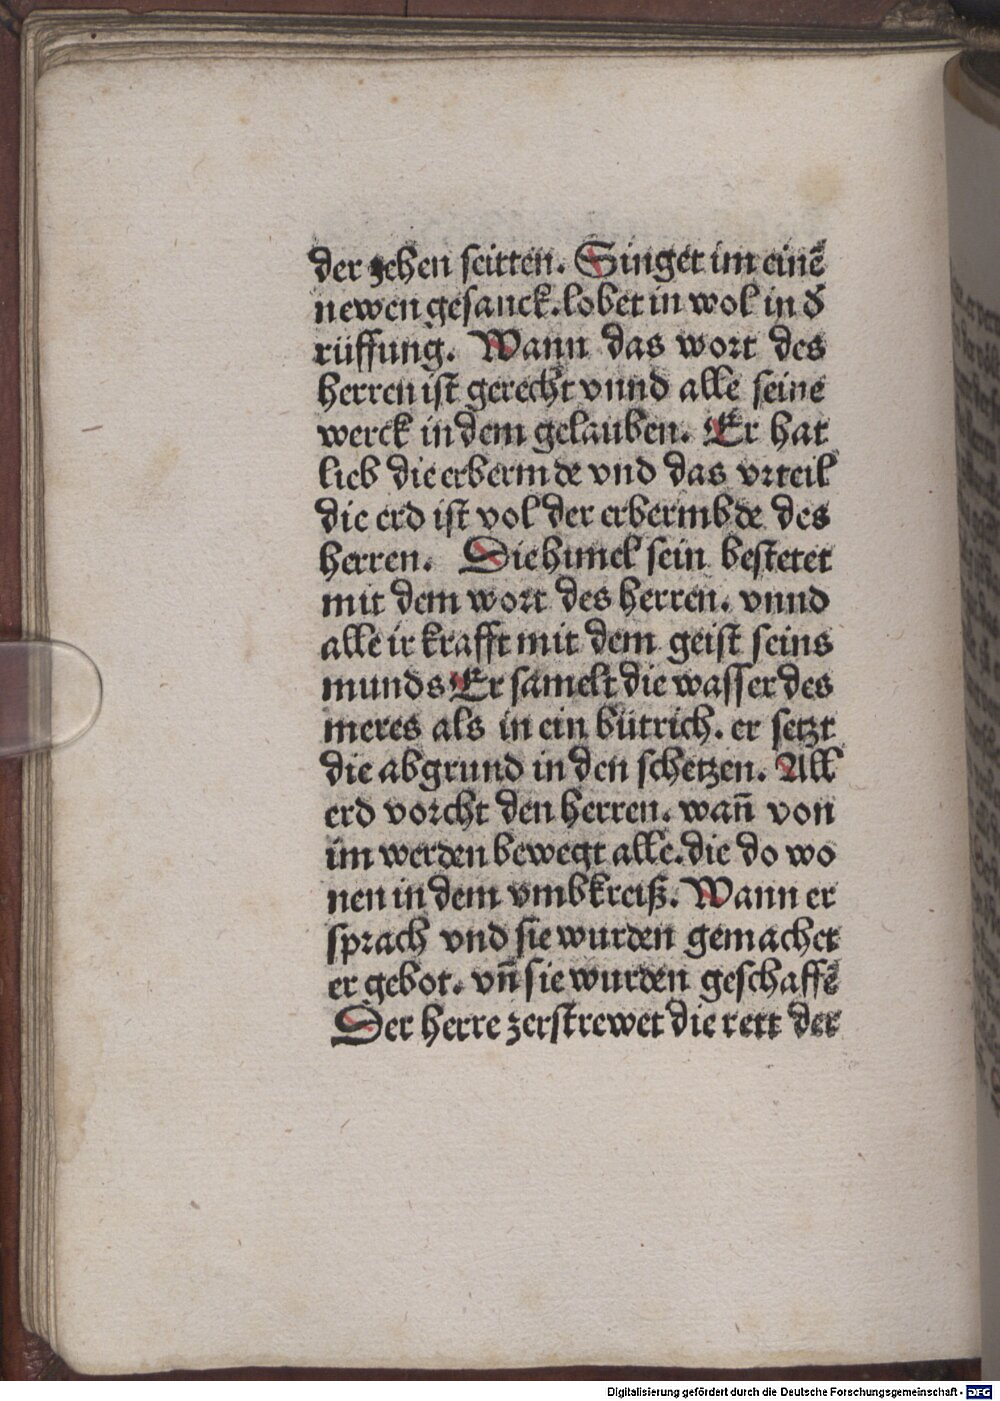 der zehen seitten. Singet im einē
newen gesanck. lobet in wol in d̉
rüffung. Wann das wort des
herren ist gerecht vnnd alle seine
werck in dem gelauben. Er hat
lieb die erbermde vnd das vrteil
die erd ist vol der erbermbde des
herren. Die himel sein bestetet
mit dem wort des herren. vnnd
alle ir krafft mit dem geist seins
munds Er samelt die wasser des
meres als in ein bütrich. er setzt
die abgrund in den schetzen. All
erd vorcht den herren. wann̄ von
im werden bewegt alle. die do wo
nen in dem vmbkreiß. Wann er
sprach vnd sie wurden gemachet
er gebot. vn̄ sie wurden geschaffē
Der herre zerstrewet die rett der
Digitalisierung gefördert durch die Deutsche Forschungsgemeinschaft - DFG